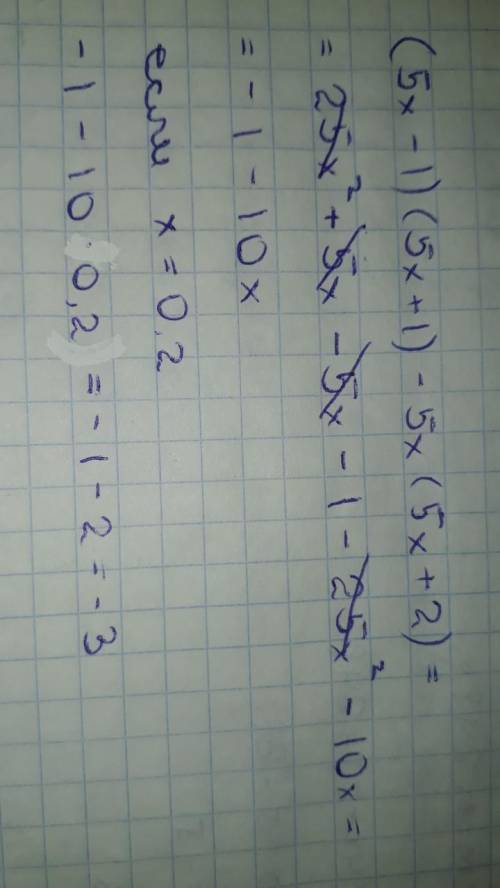 (5x - 1)(5x + 1) - 5x(5x + 2) =
= 25x² + 5x - 5x - 1 - 25x² - 10x =
= - 1 - 10x
если x = 0,2
- 1 - 10 · 0,2 = - 1 - 2 = - 3